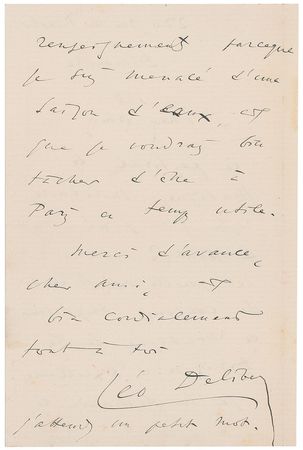 renseignement parceque
je suis menacé d'une
saison d'eaux, et
que je voudrais bien
tâcher d'être à
Paris en temps utile.
Merci d'avance,
cher ami, et
bien cordialement
tout à toi
Léo Delibes
j'attends un petit mot.